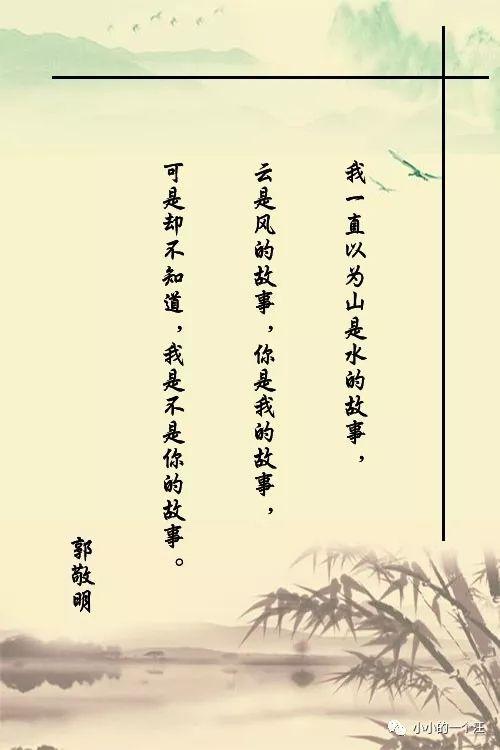 我一直以为山是水的故事，
云是风的故事，你是我的故事，
可是却不知道，我是不是你的故事。
郭敬明
小小的一个汪